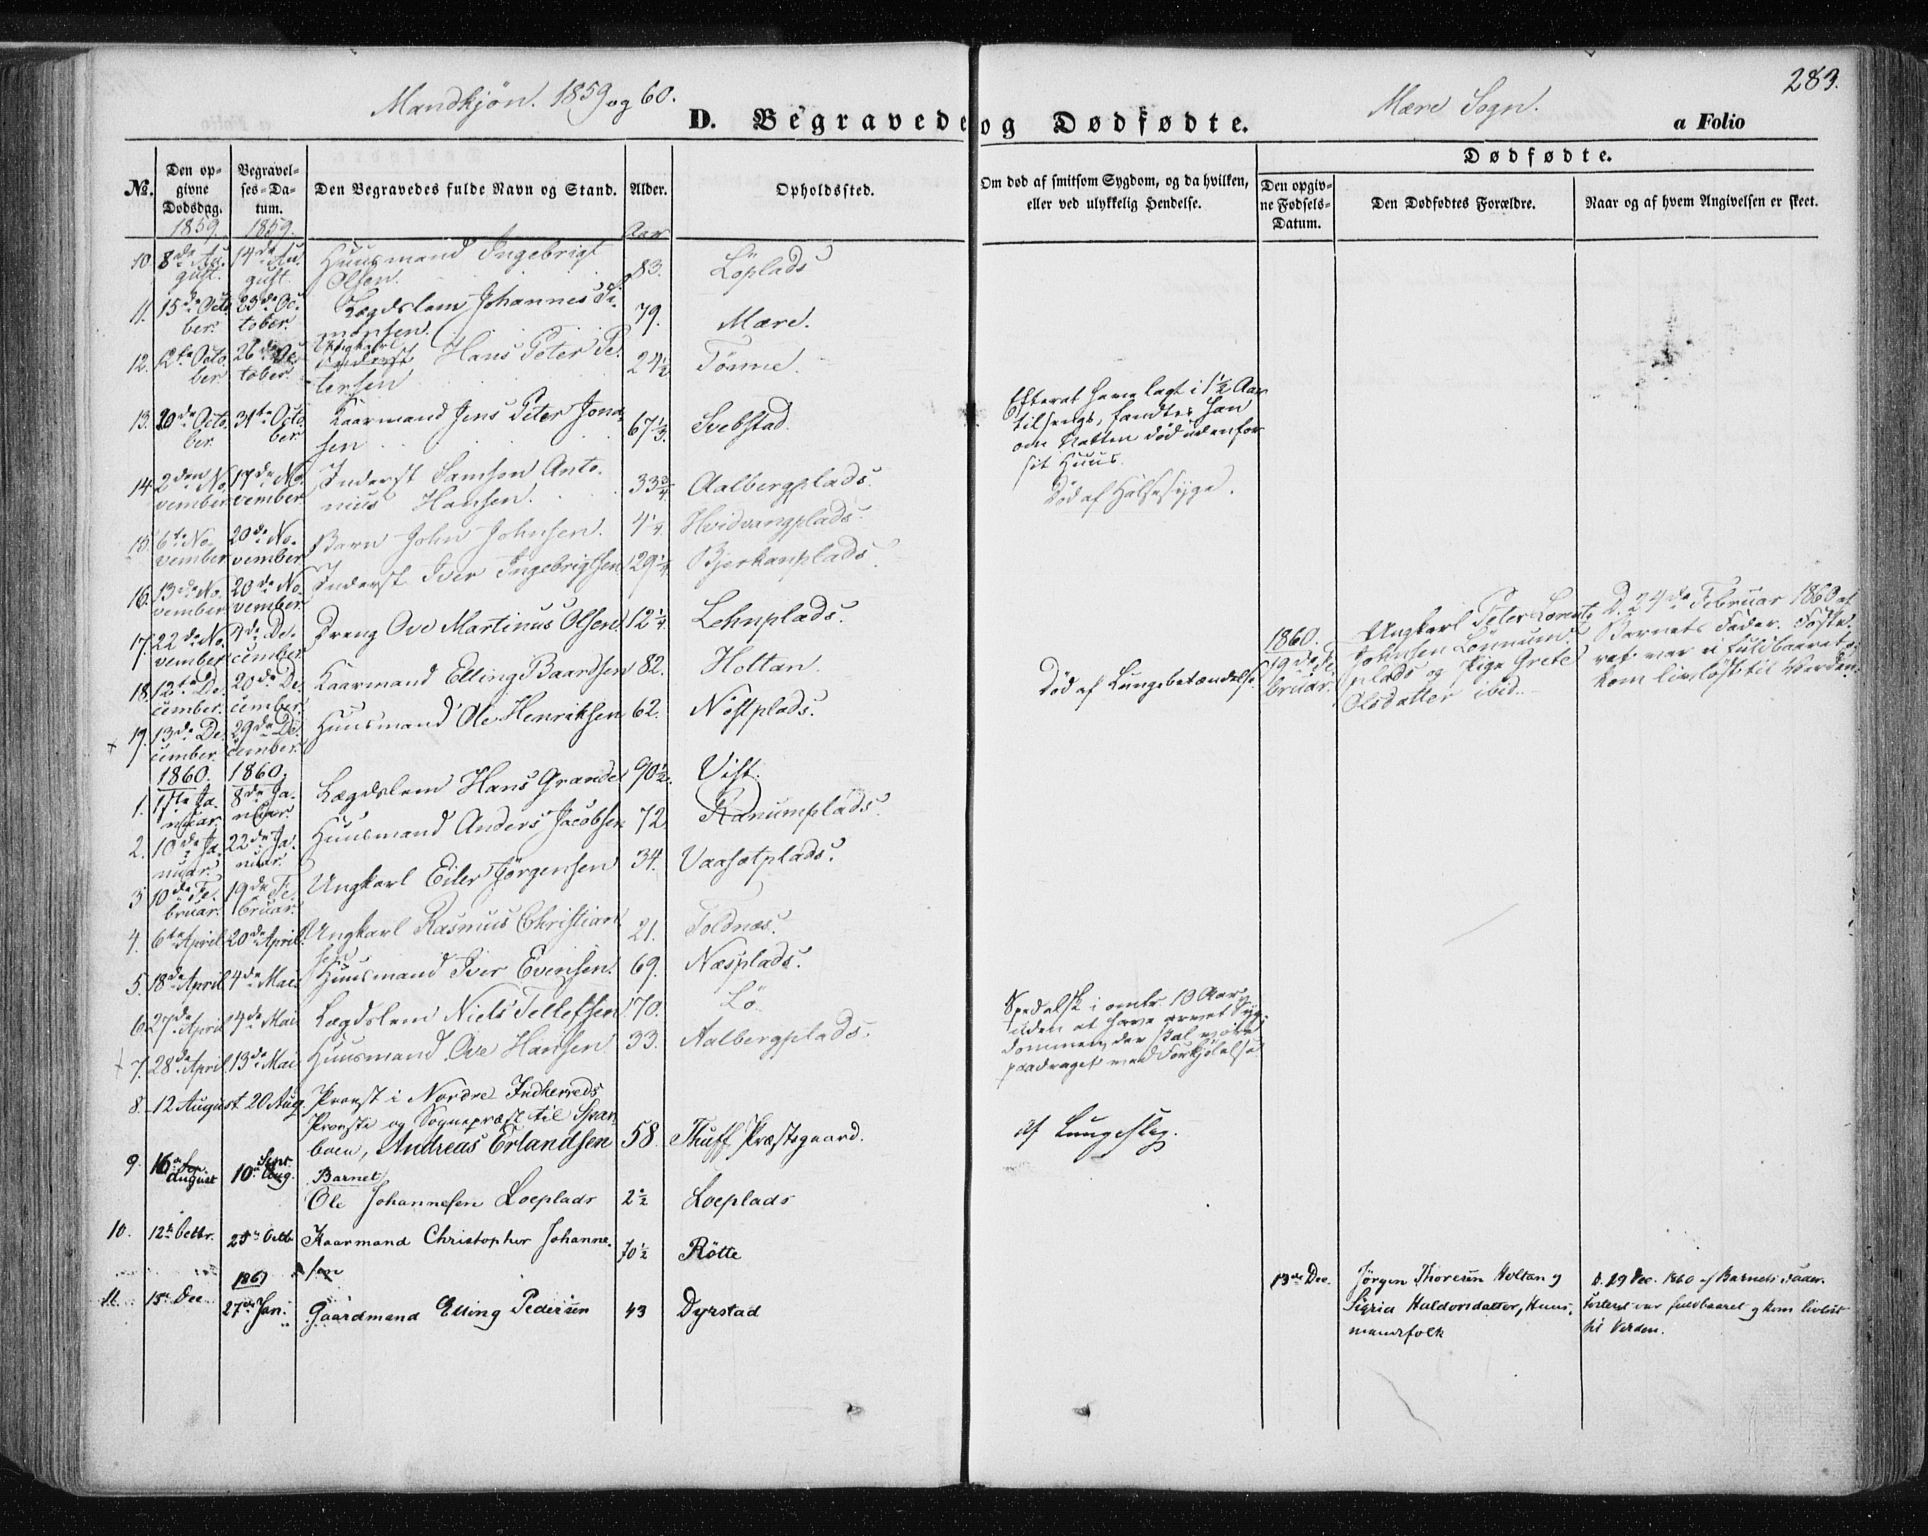 Mandkjøn. 1859 og 60.
Mære Sogn.
283.
D. Begravede og Dødfødte.
a Folio
No.
Den opgivne Dødsdag.
Begravelses-Datum.
Den Begravedes fulde Navn og Stand.
Alder.
Opholdssted.
Om død af smitsom Sygdom, og da hvilken, eller ved ulykkelig Hendelse.
Dødfødte.
Den opgivne Fødsels-Datum.
Den Dødfødtes Forældre.
Naar og af hvem Angivelsen er skeet.
1859. 1859. Aar
10. 8de August. 14de August. Huusmand Ingebrigt Olsen. 83. Löplads
11. 15de October. 23de October. Lægdslem Johannes Simonsen. 79. Mære.
12. 12te October. 26de October. Hans Peter Petersen 24½ Tönne.
13. 20de October. 31te October Kaarmand Jens Peter Jonasen 67⅓. Svebstad.
Efter at have lagt i 1½ Aar
tilsengs, fandtes han
om Natten död udenfor
sit Huus.
14. 2den November 17de November Inderst Samson Antonius Hansen. 33¾ Aalbergplads. Död af Halsesyge.
15. 6te November 20de November Barn John Johnsen. 4¼ Hvidvangplads.
16. 13de November 20de November. Inderst Iver Ingebrigtsen 29¼ Bjerkanplads.
17. 22de November 4de December Dreng Ove Martinus Olsen 12¼ Lehnplads.
18. 12te December. 20de December. Kaarmand Elling Baardsen 82. Holtan. Död af Lungebetændelse.
1860.
19de Februar.
Ungkarl Peter Lorents
Johnsen Lönnum
plads og Pige Grete
Olsdatter ibid.
D. 24de Februar 1860 af
Barnets Fader. Fosteret
var ei fuldbaaret,
kom livlöst til Verden.
19. 13de December. 29de December. Huusmand Ole Henriksen 62. Nöstplads.
1860. 1860.
1. 1ste Januar. 8de Januar. Lægdslem Hans Grande 90½. Vist.
2. 10de Januar. 22de Januar. Huusmand Anders Jacobsen 72. Ranumplads.
3 10de Februar. 19de Februar. Ungkarl Eiler Jörgensen 34. Vaasetplads.
4. 6te April 20de April. Ungkarl Rasmus Christiansen 21. Toldnæs.
5. 18de April 4de Mai. Huusmand Iver Evensen. 69. Næsplads.
6. 27de April 4de Mai Lægdslem Niels Tellefsen 70. Lö
7. 28de April. 13de Mai Huusmand Ove Hansen 33. Aalbergplads.
Spedalsk i omtr. 10 Aar,
uden at have arvet Syg-
dommen, der skal være
paadraget ved Forkjölelse
8. 12 August 20 Aug. Provst i Nordre Indherreds
Provstie og Sognepræst til Sparboen, Andreas Erlandsen 58. Thuff Præstegaard. af Lungeslag.
9. 16 August 10 Sept. Barnet
Ole Johannesen Loeplads 2½ Loeplads
10. 12te Octbr. 25de Octb Kaarmand Christopher Johannesen 70½ Rötte
1861
11. 15de Dec 27de Jan. Gaardmand Elling Pedersen 43 Dyrstad
13de Dec.
Jörgen Thoresen Holtan og
Sigrid Haldorsdatter, Huus-
mandsfolk
d. 29 Dec. 1860 af Barnets Fader.
Fosteret var fuldbaaret og kom livlöst
til Verden.